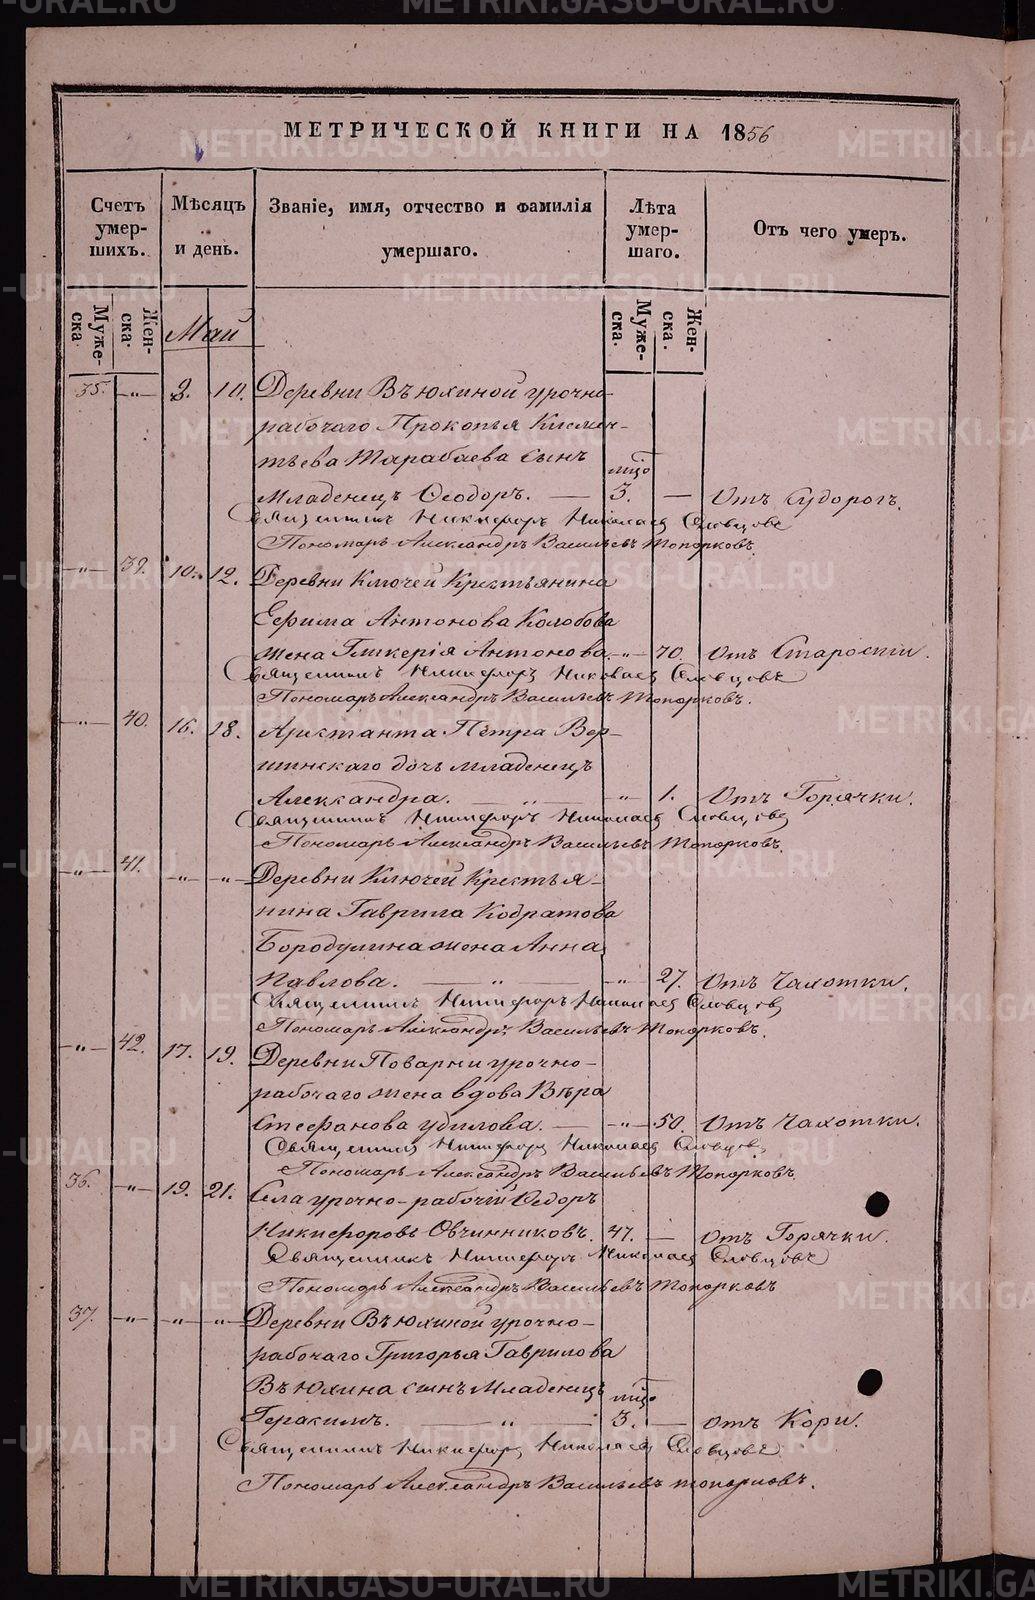 МЕТРИЧЕСКОЙ КНИГИ НА 1856
Счетъ умер-шихъ.
Мѣсяцъ и день.
Званіе, имя, отчество и фамилія умершаго.
Лѣта умер-шаго.
Отъ чего умеръ.
Муже-ска.
Жен-ска.
Май
Муже-ска.
Жен-ска.
35. —"— 3. 10. Деревни Вьюхиной урочно-
рабочаго Прокопья
Тарабаева сынъ
Младенецъ Ѳеодоръ. — 3. — Отъ Судорогъ.
Священникъ Никифоръ Николаевъ Словцовъ
Пономарь Александръ Васильевъ Топорковъ.
—"— 39. 10. 12. Деревни Ключей Крестьянина
Ефима Антонова Колобова
жена Гликерія Антонова. —"— 70. Отъ Старости.
Священникъ Никифоръ Николаевъ Словцовъ
Пономарь Александръ Васильевъ Топорковъ.
—"— 40. 16. 18. Арестанта Петра Вер-
шинскаго дочь младенецъ
Александра. — " — —"— 1. Отъ Горячки.
Священникъ Никифоръ Николаевъ Словцовъ
Пономарь Александръ Васильевъ Топорковъ.
—"— 41. —"— —"— Деревни Ключей Крестья-
нина Гаврила Кодратова
Бородулина жена Анна
Павлова. — " — —"— 27. Отъ Чахотки.
Священникъ Никифоръ Николаевъ Словцовъ
Пономарь Александръ Васильевъ Топорковъ.
—"— 42. 17. 19. Деревни Поварни урочно-
рабочаго жена вдова Вѣра
Стефанова Удилова. — —"— 50. Отъ Чахотки.
Священникъ Никифоръ Николаевъ Словцовъ
Пономарь Александръ Васильевъ Топорковъ.
36. —"— 19. 21. Села урочно-рабочій Ѳедоръ
Никифоровъ Овчинниковъ. 47. — Отъ Горячки.
Священникъ Никифоръ Николаевъ Словцовъ
Пономарь Александръ Васильевъ Топорковъ
37. —"— —"— —"— Деревни Вьюхиной урочно-
рабочаго Григорья Гаврилова
Вьюхина сынъ Младенецъ
Геракимъ. — " — 3. — отъ Кори.
Священникъ Никифоръ Николаевъ Словцовъ
Пономарь Александръ Васильевъ Топорковъ.
METRIKI.GASO-URAL.RU